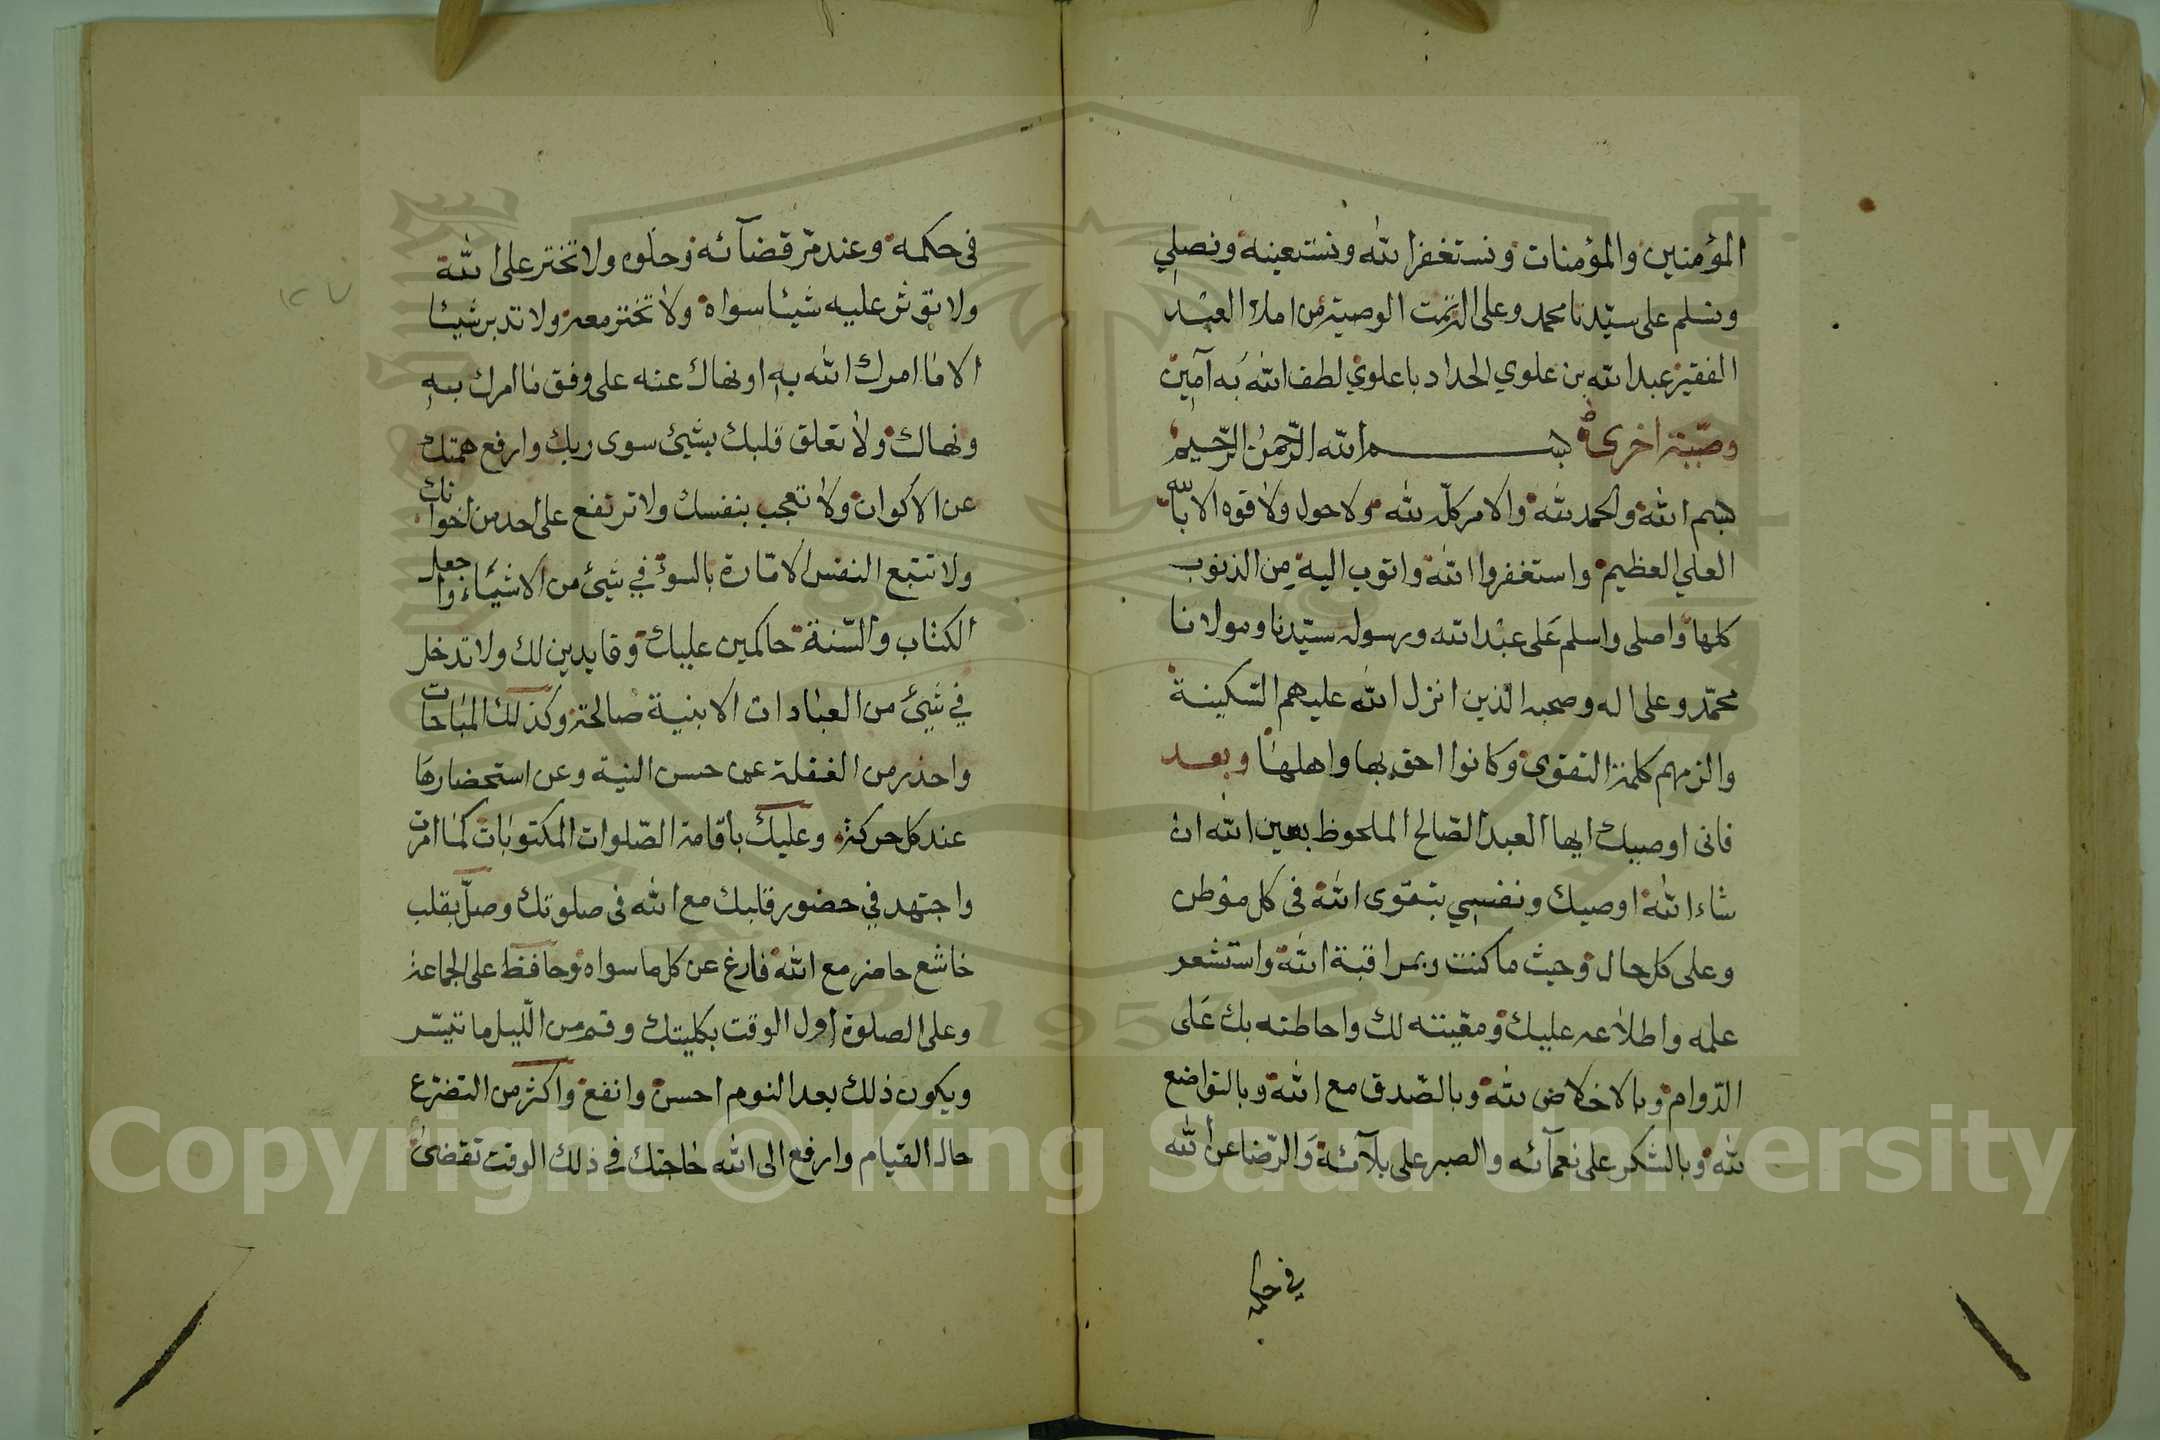 المؤمنين والمؤمنات ونستغفر الله ونستعينه ونصلي
ونسلم على سيدنا محمد وعلى اله تمت الوصية من املاء العبد
الفقير عبد الله بن علوي الحداد باعلوي لطف الله به آمين
وصية اخرى بسم الله الرحمن الرحيم
بسم الله والحمد لله والامر كله لله ولا حول ولا قوه الا بالله
العلي العظيم واستغفروا الله واتوب اليه من الذنوب
كلها واصلى واسلم على عبد الله ورسوله سيدنا ومولانا
محمد وعلى اله وصحبه الذين انزل الله عليهم السكينة
والزمهم كلمة التقوى وكانوا احق بها واهلها وبعد
فانى اوصيك ايها العبد الصالح الملحوظ بعين الله ان
شاء الله اوصيك ونفسي بتقوى الله فى كل موطن
وعلى كل حال وحيث ما كنت وبمراقبة الله واستشعر
علمه واطلاعه عليك ومعيته لك واحاطته بك على
الدوام وبالاخلاص لله وبالصدق مع الله وبالتواضع
لله وبالشكر على نعمآئه والصبر على بلآئه والرضا عن الله
في حكمه
فى حكمه وعند مر قضآئه وحلوه ولا تختر على الله
ولا تؤثر عليه شيئا سواه ولا تختر معه ولا تدبر شيئا
الا ما امرك الله به او نهاك عنه على وفق ما امرك به
ونهاك ولا تعلق قلبك بشيئ سوى ربك وارفع همتك
عن الاكوان ولا تعجب بنفسك ولا ترتفع على احد من اخوانك
ولا تتبع النفس الامارة بالسوء في شيئ من الاشياء واجعل
الكتاب والسنة حاكمين عليك وقايدين لك ولا تدخل
في شيئ من العبادات الا بنية صالحة وكذلك المباحات
واحذر من الغفلة عن حسن النية وعن استحضارها
عند كل حركة وعليك باقامة الصلوات المكتوبات كما امرت
واجتهد في حضور قلبك مع الله فى صلوتك وصل بقلب
خاشع حاضر مع الله فارغ عن كل ما سواه وحافظ على الجماعة
وعلى الصلوة اول الوقت بكليتك وقم من الليل ما تيسر
ويكون ذلك بعد النوم احسن وانفع واكثر من التضرع
حال القيام وارفع الى الله حاجتك في ذلك الوقت تقضى
Copyright © King Saud University
1957